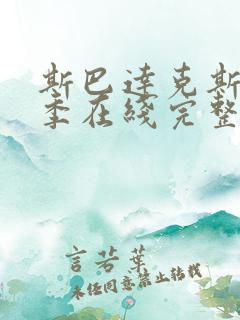 斯巴达克斯
季在线完整
言若华
未经同意禁止转载